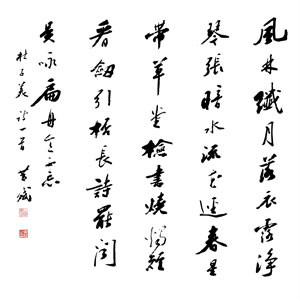 風林纖月落衣露淨
琴張暗水流花逕春星
帶草堂檢書燒燭短
看劍引桮長詩罷聞
吳詠扁舟意不忘
杜子美詩一首